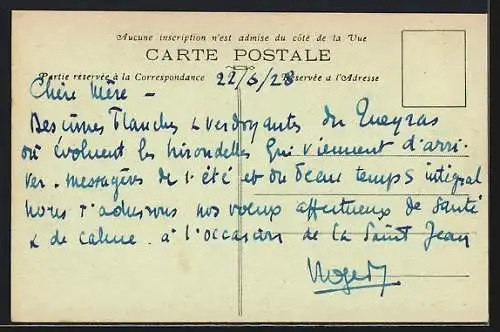 Aucune inscription n'est admise du côté de la Vue
CARTE POSTALE
Partie réservée à la Correspondance
Réservée a l'Adresse
22/6/28
Chère Mère -
Des cimes blanches & verdoyantes du Queyras
où évoluent les hirondelles qui viennent d'arri-
ver - messagères de l'été et du beau temps intégral
nous t'adressons nos voeux affectueux de santé
& de calme à l'occasion de la Saint Jean